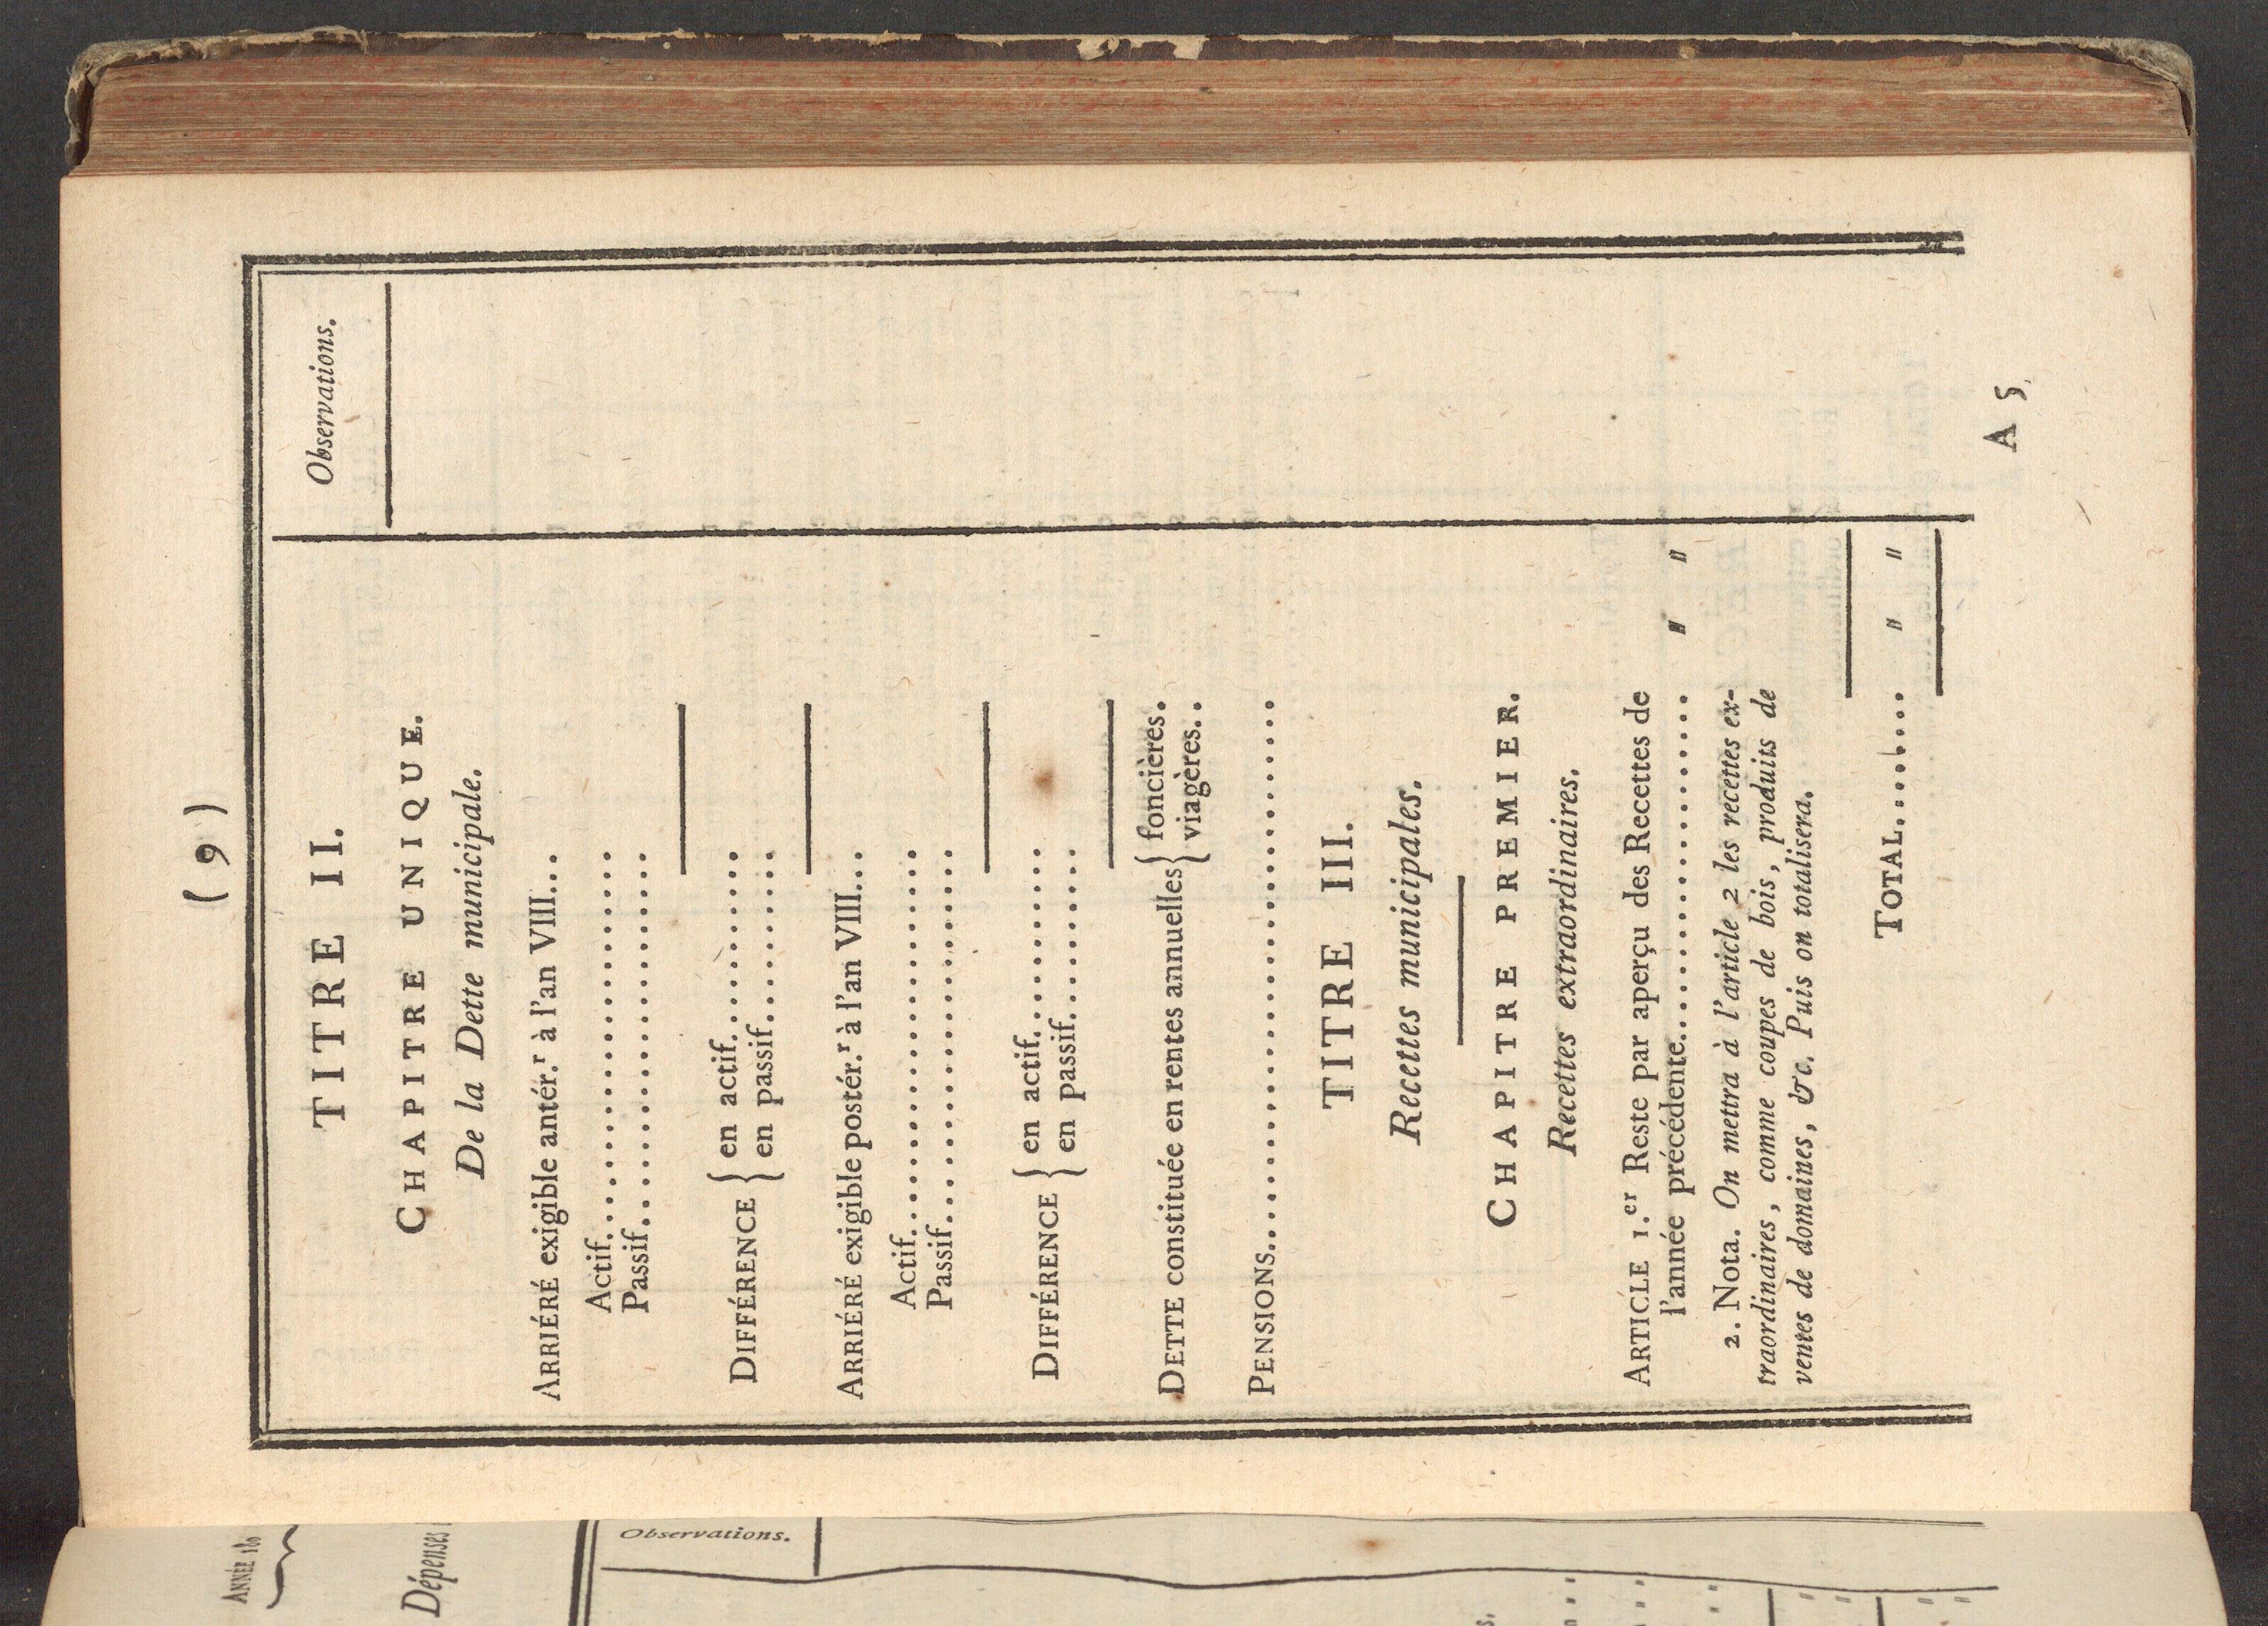 ( 9 )
Observations.
TITRE II.
CHAPITRE UNIQUE.
De la Dette municipale.
ARRIÉRÉ exigible antér.r à l'an VIII...
Actif..........................
Passif..........................
DIFFÉRENCE { en actif............
en passif............
ARRIÉRÉ exigible postér.r à l'an VIII...
Actif..........................
Passif..........................
DIFFÉRENCE { en actif............
en passif............
DETTE constituée en rentes annuelles { foncières.
viagères..
PENSIONS....................................
TITRE III.
Recettes municipales.
CHAPITRE PREMIER.
Recettes extraordinaires.
ARTICLE 1.er Reste par aperçu des Recettes de
l'année précédente........................ " "
2. Nota. On mettra à l'article 2 les recettes ex-
traordinaires, comme coupes de bois, produits de
ventes de domaines, &c. Puis on totalisera.
TOTAL.......... " "
A 5
ANNÉE 180
Dépenses
Observations.